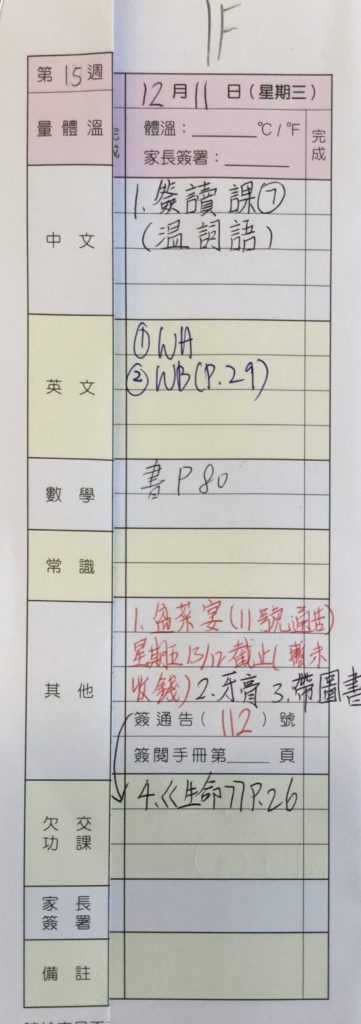 1F
第15週
12月11日(星期三)
量體溫
體溫：______°C/°F
家長簽署：______
完成
中文
1. 簽讀課⑦
(温詞語)
英文
① WA
② WB(P.29)
數學
書 P80
常識
其他
1. 盆菜宴(11號通告)
星期五13/12截止(暫未
收錢) 2. 牙膏 3. 帶圖書
簽通告(112)號
簽閱手冊第____頁
欠交功課
4.《生命》P.26
家長簽署
備註